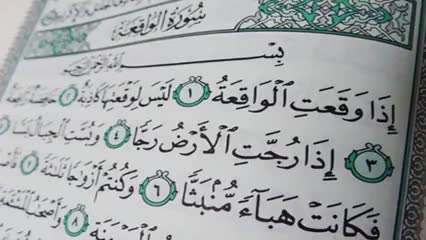 سُورَةُ الوَاقِعَةِ
بِسْمِ اللَّهِ الرَّحْمَٰنِ الرَّحِيمِ
إِذَا وَقَعَتِ ٱلْوَاقِعَةُ ١ لَيْسَ لِوَقْعَتِهَا كَاذِبَةٌ ٢ خَافِضَةٌ رَّافِعَةٌ
٣ إِذَا رُجَّتِ ٱلْأَرْضُ رَجًّا ٤ وَبُسَّتِ ٱلْجِبَالُ
فَكَانَتْ هَبَآءً مُّنۢبَثًّا ٦ وَكُنتُمْ أَزْوَٰجًا ثَلَٰثَةً ٧
٨ وَأَصْحَٰبُ